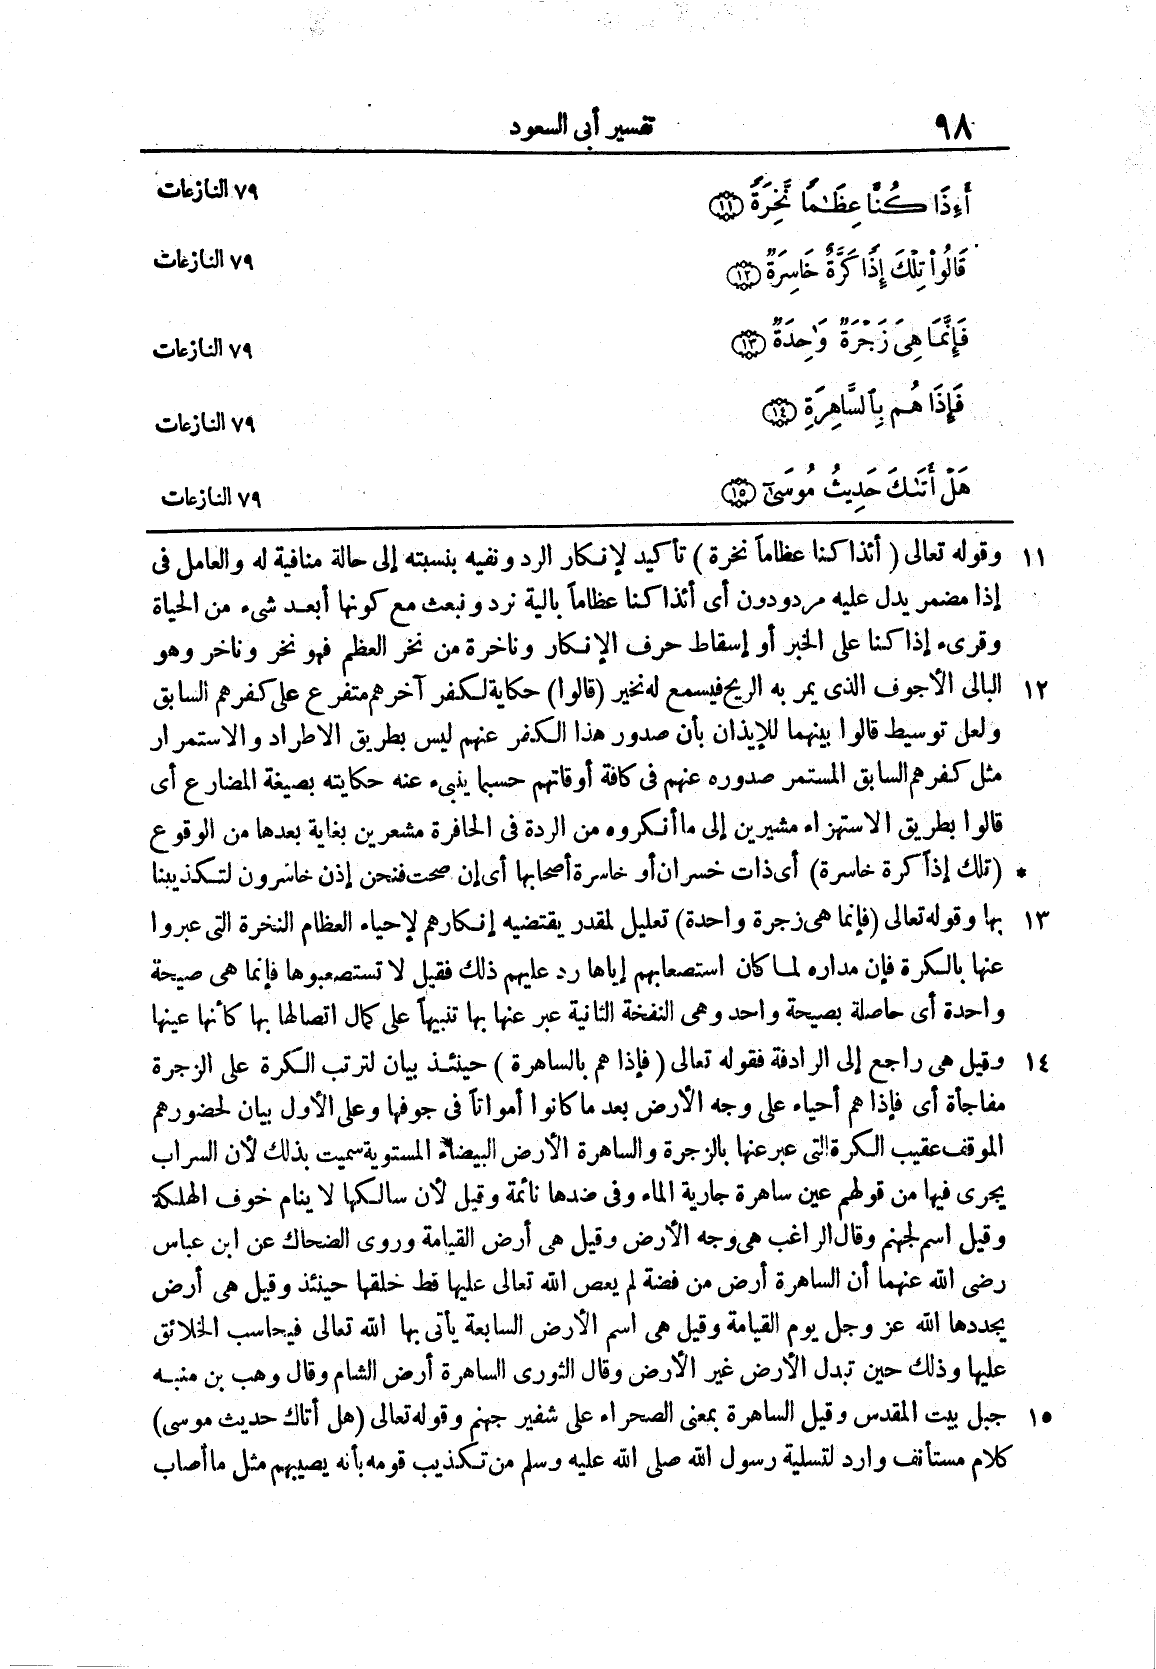 ٩٨ تفسير أبى السعود
أَءِذَا كُنَّا عِظَٰمًا نَّخِرَةً ١١ ٧٩ النازعات
قَالُوا۟ تِلْكَ إِذًا كَرَّةٌ خَاسِرَةٌ ١٢ ٧٩ النازعات
فَإِنَّمَا هِىَ زَجْرَةٌ وَٰحِدَةٌ ١٣ ٧٩ النازعات
فَإِذَا هُم بِٱلسَّاهِرَةِ ١٤ ٧٩ النازعات
هَلْ أَتَىٰكَ حَدِيثُ مُوسَىٰٓ ١٥ ٧٩ النازعات
١١ وقوله تعالى ( أئذا كنا عظاماً نخرة ) تأكيد لإنكار الرد ونفيه بنسبته إلى حالة منافية له والعامل فى
إذا مضمر يدل عليه مردودون أى أئذا كنا عظاماً بالية نرد ونبعث مع كونها أبعد شىء من الحياة
وقرىء إذا كنا على الخبر أو إسقاط حرف الإنكار وناخرة من نخر العظم فهو نخر وناخر وهو
١٢ البالى الأجوف الذى يمر به الريح فيسمع له نخير (قالوا) حكاية لكفر آخرهم متفرع على كفرهم السابق
ولعل توسيط قالوا بينهما للإيذان بأن صدور هذا الكفر عنهم ليس بطريق الاطراد والاستمرار
مثل كفرهم السابق المستمر صدوره عنهم فى كافة أوقاتهم حسبما ينبىء عنه حكايته بصيغة المضارع أى
قالوا بطريق الاستهزاء مشيرين إلى ما أنكروه من الردة فى الحافرة مشعرين بغاية بعدها من الوقوع
* (تلك إذاً كرة خاسرة) أى ذات خسران أو خاسرة أصحابها أى إن صحت فنحن إذن خاسرون لتكذيبنا
١٣ بها وقوله تعالى (فإنما هى زجرة واحدة) تعليل لمقدر يقتضيه إنكارهم لإحياء العظام النخرة التى عبروا
عنها بالكرة فإن مداره لما كان استصعابهم إياها رد عليهم ذلك فقيل لا تستصعبوها فإنما هى صيحة
واحدة أى حاصلة بصيحة واحد وهى النفخة الثانية عبر عنها بها تنبيهاً على كمال اتصالها بها كأنها عينها
١٤ وقيل هى راجع إلى الرادفة فقوله تعالى ( فإذا هم بالساهرة ) حينئذ بيان لترتب الكرة على الزجرة
مفاجأة أى فإذا هم أحياء على وجه الأرض بعد ما كانوا أمواتاً فى جوفها وعلى الأول بيان لحضورهم
الموقف عقيب الكرة التى عبر عنها بالزجرة والساهرة الأرض البيضاء المستوية سميت بذلك لأن السراب
يجرى فيها من قولهم عين ساهرة جارية الماء وفى ضدها نائمة وقيل لأن سالكها لا ينام خوف الهلكة
وقيل اسم لجهنم وقال الراغب هى وجه الأرض وقيل هى أرض القيامة وروى الضحاك عن ابن عباس
رضى الله عنهما أن الساهرة أرض من فضة لم يعص الله تعالى عليها قط خلقها حينئذ وقيل هى أرض
يجددها الله عز وجل يوم القيامة وقيل هى اسم الأرض السابعة يأتى بها الله تعالى فيحاسب الخلائق
عليها وذلك حين تبدل الأرض غير الأرض وقال الثورى الساهرة أرض الشام وقال وهب بن منبه
١٥ جبل بيت المقدس وقيل الساهرة بمعنى الصحراء على شفير جهنم وقوله تعالى (هل أتاك حديث موسى)
كلام مستأنف وارد لتسلية رسول الله صلى الله عليه وسلم من تكذيب قومه بأنه يصيبهم مثل ما أصاب